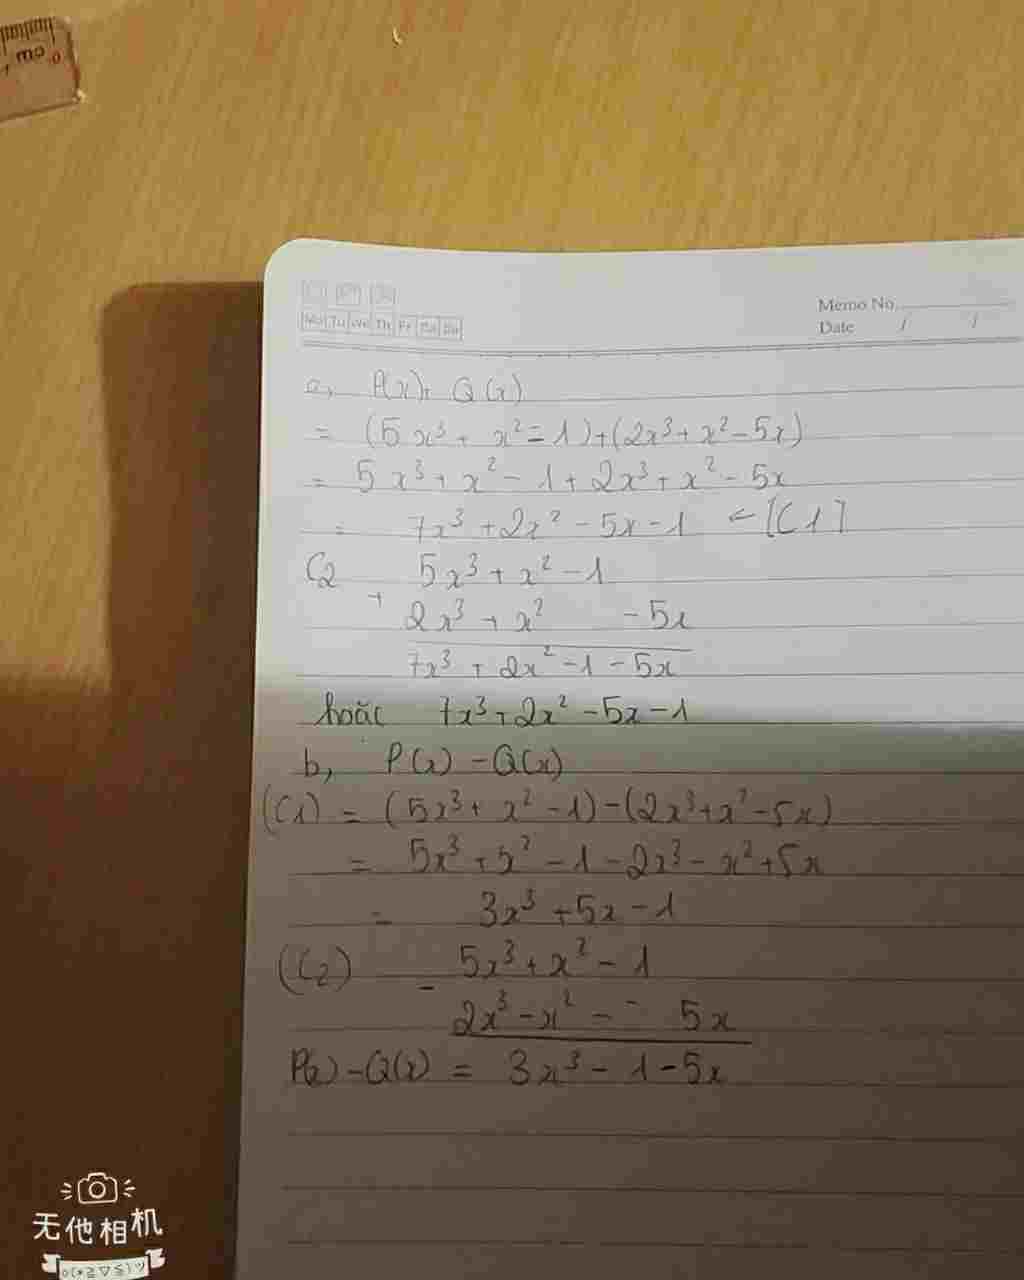 cm 0
Mo Tu We Th Fr Sa Su
Memo No.
Date / /
a, P(x) + Q(x)
= (5x³ + x² - 1) + (2x³ + x² - 5x)
= 5x³ + x² - 1 + 2x³ + x² - 5x
= 7x³ + 2x² - 5x - 1 ← [C1]
C2 5x³ + x² - 1
+
2x³ + x² - 5x
7x³ + 2x² - 1 - 5x
hoặc 7x³ + 2x² - 5x - 1
b, P(x) - Q(x)
(C1) = (5x³ + x² - 1) - (2x³ + x² - 5x)
= 5x³ + x² - 1 - 2x³ - x² + 5x
= 3x³ + 5x - 1
(C2) 5x³ + x² - 1
-
2x³ - x² - - 5x
P(x) - Q(x) = 3x³ - 1 - 5x
无他相机